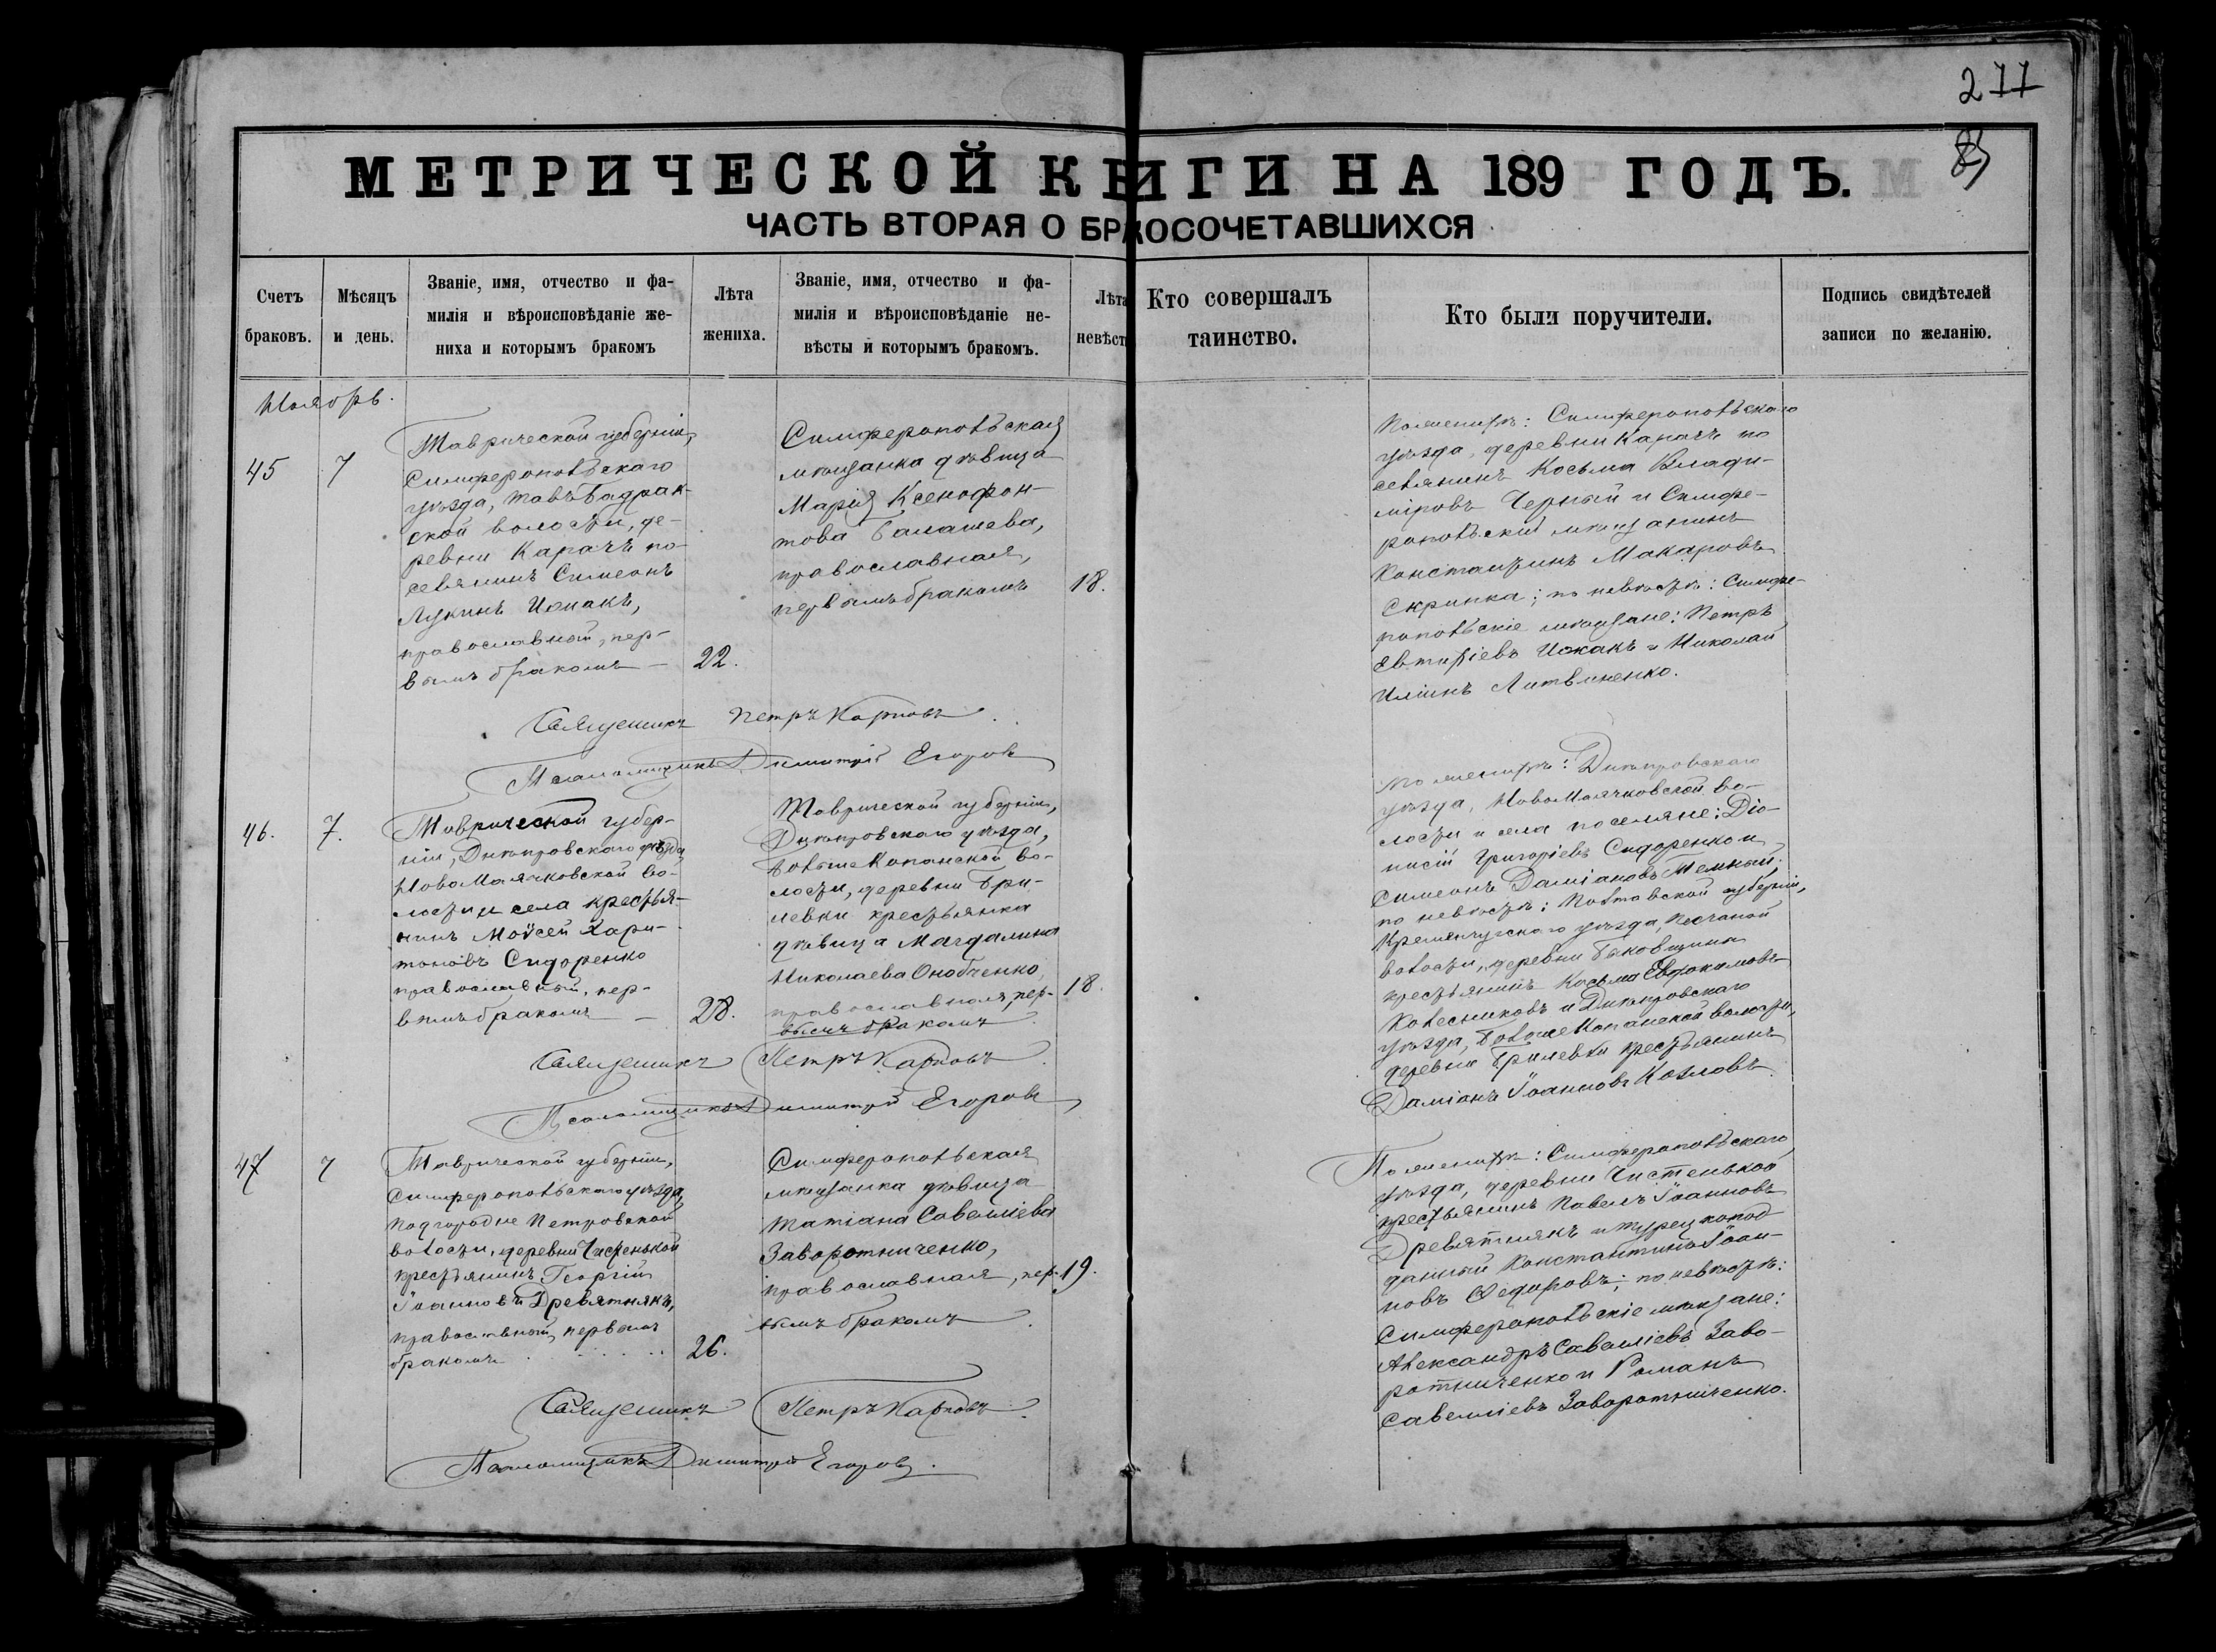 277
85
МЕТРИЧЕСКОЙ КНИГИ НА 189 ГОДЪ.
ЧАСТЬ ВТОРАЯ О БРАКОСОЧЕТАВШИХСЯ
Счетъ
браковъ.
Мѣсяцъ
и день.
Званіе, имя, отчество и фа-
милія и вѣроисповѣданіе же-
ниха и которымъ бракомъ
Лѣта
жениха.
Званіе, имя, отчество и фа-
милія и вѣроисповѣданіе не-
вѣсты и которымъ бракомъ.
Лѣта
невѣст
Кто совершалъ
таинство.
Кто были поручители.
Подпись свидѣтелей
записи по желанію.
Ноябрь.
45
7
Таврической губерніи,
Симферопольскаго
уѣзда, ТавъБадрак-
ской волости, де-
ревни Карачъ по-
селянинъ Симеонъ
Лукинъ Ишакъ,
православный, пер-
вымъ бракомъ —
22.
Симферопольская
мѣщанка дѣвица
Марія Ксенофон-
това Балашева,
православная,
первымъ бракомъ
18.
По женихѣ: Симферопольскаго
уѣзда, деревни Карачъ по
селянинъ Косьма Влади-
міровъ Черный и Симфе-
ропольскій мѣщанинъ
Константинъ Макаровъ
Скрипка; по невѣстѣ: Симфе-
ропольскіе мѣщане: Петръ
Евтихіевъ Ишакъ и Николай
Иліинъ Литвиненко.
Священникъ Петръ Карповъ
Псаломщикъ Димитрій Егоровъ
46.
7.
Таврической губер-
ніи, Днѣпровскаго уѣзда,
НовоМаячковской во-
лости и села крестья-
нинъ Моѵсей Хари-
тоновъ Сидоренко
православный, пер-
вымъ бракомъ —
28.
Таврической губерніи,
Днѣпровскаго уѣзда,
БольшеКопанской во-
лости, деревни Бри-
левки крестьянка
дѣвица Магдалина
Николаева Онобченко,
православная, пер-
вымъ бракомъ
18.
По женихѣ: Днѣпровскаго
уѣзда, НовоМаячковской во-
лости и села поселяне: Діо-
нисій Григоріевъ Сидоренко и
Симеонъ Даміановъ Темный;
по невѣстѣ: Полтавской губерніи,
Кременчугскаго уѣзда, Песчаной
волости, деревни Быковщины
крестьянинъ Косьма Евдокимовъ
Колесниковъ и Днѣпровскаго
уѣзда, БольшеКопанской волости,
деревни Брилевки крестьянинъ
Даміанъ Іоанновъ Козловъ.
Священникъ Петръ Карповъ
Псаломщикъ Димитрій Егоровъ
47
7
Таврической губерніи,
Симферопольскаго уѣзда,
Подгородне Петровской
волости, деревни Чистенькой
крестьянинъ Георгій
Іоанновъ Древятнякъ,
православный, первымъ
бракомъ
26.
Симферопольская
мѣщанка дѣвица
Татіана Савеліева
Заворотниченко,
православная, пер-
вымъ бракомъ
19.
По женихѣ: Симферопольскаго
уѣзда, деревни Чистенькой
крестьянинъ Павелъ Іоанновъ
Древятнякъ и турецкоподд
данный Константинъ Іоан-
новъ Ѳедоровъ; по невѣстѣ:
Симферопольскіе мѣщане:
Александръ Савеліевъ Заво-
ротниченко и Романъ
Савеліевъ Заворотниченко.
Священникъ Петръ Карповъ
Псаломщикъ Димитрій Егоровъ.